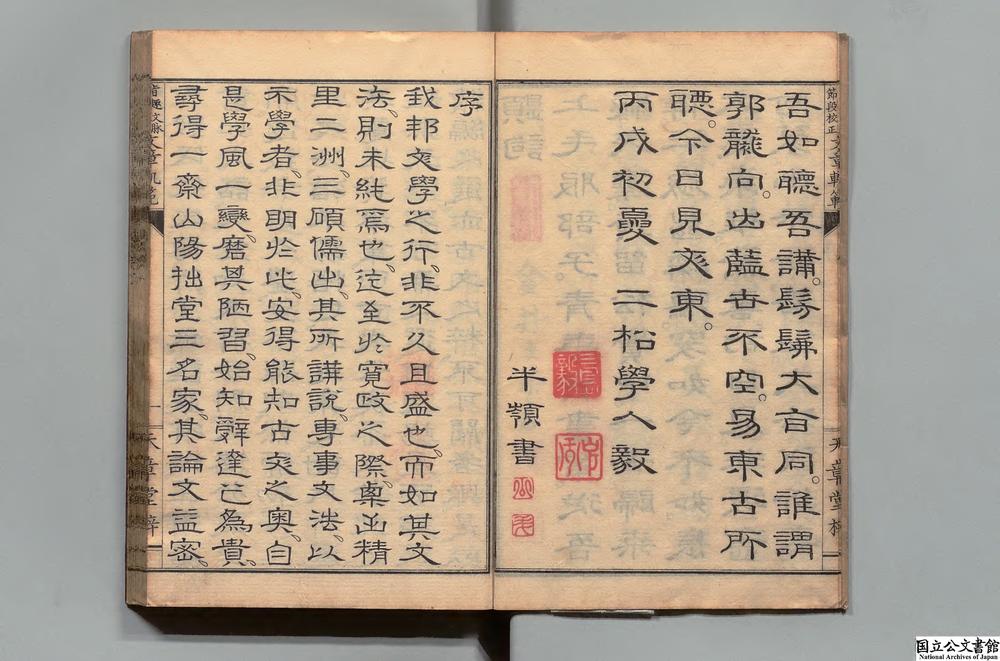 節段校正文章軌範
天章堂梓
吾如聽吾講。髣髴大古同。誰謂
郭龍向。出藍世不空。易東古所
聽。今日見文東。
丙戌初夏 二松學人毅
半嶺書
序
我邦文學之行、非不久且盛也、而如其文
法、則未純焉也、迄至於寬政之際、栗山精
里二洲、三碩儒出、其所講說、專事文法、以
示學者、非明於此、安得能知古文之奧、自
是學風一變、磨其陋習、始知辭達之為貴、
尋得一齋山陽拙堂三名家、其論文益密、
文章軌範
天章堂梓
国立公文書館
National Archives of Japan